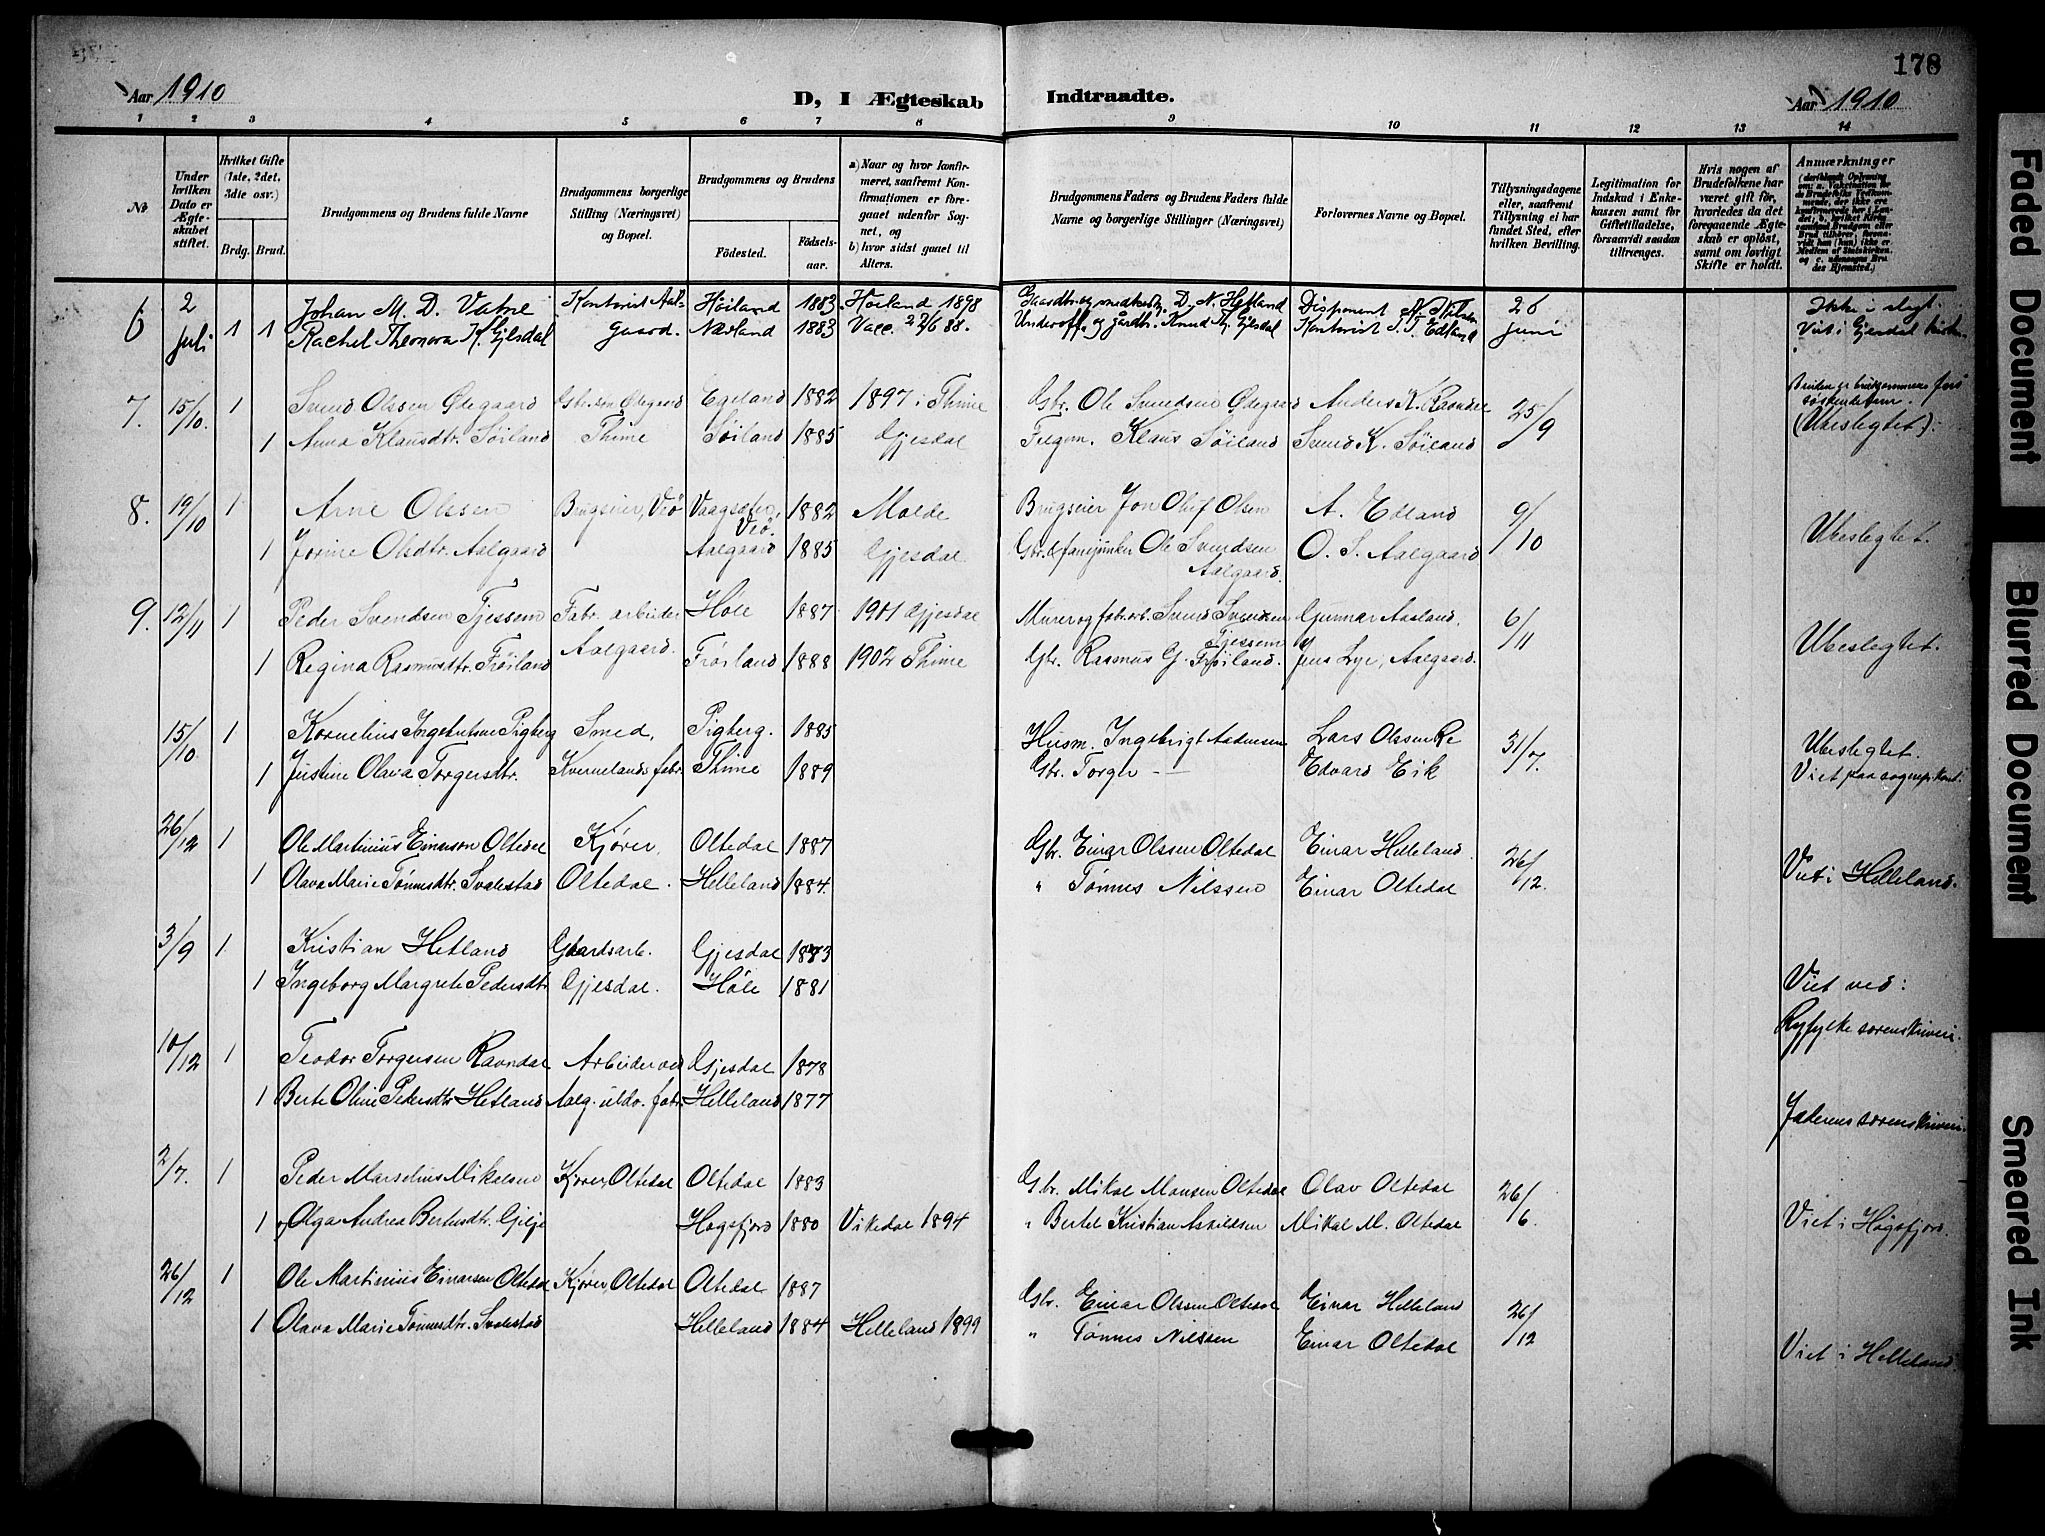 178
Aar 1910
D, I Ægteskab Indtraadte.
Aar 1910
1 2 3 4 5 6 7 8 9 10 11 12 13 14
Nr
Under hvilken Dato er Ægteskabet stiftet.
Hvilket Gifte (1ste, 2det, 3die osv.)
Brdg. Brud.
Brudgommens og Brudens fulde Navne
Brudgommens borgerlige Stilling (Næringsvei) og Bopæl.
Brudgommens og Brudens
Fødested.
Fødselsaar.
a) Naar og hvor konfirmeret, saafremt Konfirmationen er foregaaet udenfor Sognet, og
b) hvor sidst gaaet til Alters.
Brudgommens Faders og Brudens Faders fulde Navne og borgerlige Stillinger (Næringsvei)
Forlovernes Navne og Bopæl.
Tillysningsdagene eller, saafremt Tillysning ei har fundet Sted, efter hvilken Bevilling.
Legitimation for Indskud i Enkekassen samt for Giftetilladelse, forsaavidt saadan tiltrænges.
Hvis nogen af Brudefolkene har været gift før, hvorledes da det foregaaende Ægteskab er opløst, samt om lovligt Skifte er holdt.
Anmærkninger
6 2 Juli 1 Johan M. D. Vatne Kontorist Aal- Höiland 1883 Höiland 1898 D. N. Hetland Disponent 26 Ikke i slegt.
1 Rachel Theonora K. Gjesdal gaard. Nærland 1883 Underoff. og gårdbr. Knud Gjesdal Kontorist Edland Juni Viet i Gjesdal kirke
7. 15/10. 1 Svend Olssen Ødegaard Gbr. søn Ødegaard Egeland 1882 1897 i Thime Gbr. Ole Svendsen Ødegaard Anders K. Ravndal 25/9
1 Anna Klausdtr. Søiland Thime Søiland 1885 Gjesdal Klaus Søiland Svend K. Søiland (Ubeslegtet).
8. 19/10 1 Arne Olssen Brugseier, Veø Veø. 1882 Molde Brugseier Jon Oluf Olsen A. Edland 9/10 Ubeslegtet.
1 Jorine Olsdtr. Aalgaard Aalgaard 1885 Gjesdal Gbr. & fanejunker Ole Svendsen Aalgaard. O. S. Aalgaard
9. 12/11 1 Peder Svendsen Tjessem Fabr. arbeider Høle 1887 1901 Gjesdal Murer og fabr. arb. Svend Svendsen Tjessem Gunnar Aasland. 6/11 Ubeslegtet.
1 Regina Rasmusdtr. Frøiland Aalgaard. Frøiland 1888 1902 Thime Gbr. Rasmus G. Frøiland. Jens Lye, Aalgaard.
15/10. 1 Kornelius Ingebretsen Pigberg Smed, Pigberg. 1885 Husm. Ingebrigt Aadnesen Lars Olssen Re 31/7. Ubeslegtet.
1 Justine Olava Torgersdtr. Kvernelands fabr. Thime 1889 Gbr. Torger — Edvard Eik Viet paa sogneprkont.
26/12 1 Ole Martinius Einarson Oltedal Kjører, Oltedal 1887 Gbr. Einar Olssen Oltedal Einar Helleland. 26/12. Viet i Helleland.
1 Olava Marie Tønnesdtr. Svalestad Oltedal. Helleland 1884. " Tønnes Nilssen Einar Oltedal
3/9 1 Kristian Hetland Gaardsarb. Gjesdal 1883
1 Ingeborg Margrete Pedersdtr Gjesdal. Høle 1881 Viet ved:
Ryfylke sorenskriveri.
10/12 1 Teodor Torgersen Ravndal Arbeider ved Gjesdal 1878
1 Berte Oline Pedersdtr Hetland Aalg. uldv. fabr. Helleland 1877 Jæderens sorenskriveri.
2/7. 1 Peder Marselius Mikalsen Kjører, Oltedal Oltedal 1883 Gbr. Mikal Monsen Oltedal Olav Oltedal 26/6. Viet i Høgsfjord.
1 Olga Andrea Bertesdtr. Gilje Høgsfjord 1880 Vikedal 1894 " Bertel Kristian Askildsen Mikal M. Oltedal
26/12 1 Ole Martinius Einarsen Oltedal Kjører, Oltedal Oltedal 1887 Gbr. Einar Olssen Oltedal Einar Helleland 26/12 Viet i Helleland
1 Olava Marie Tønnesdtr. Svalestad Helleland 1884 Helleland 1899 " Tønnes Nilssen Einar Oltedal
Faded Document
Blurred Document
Smeared Ink